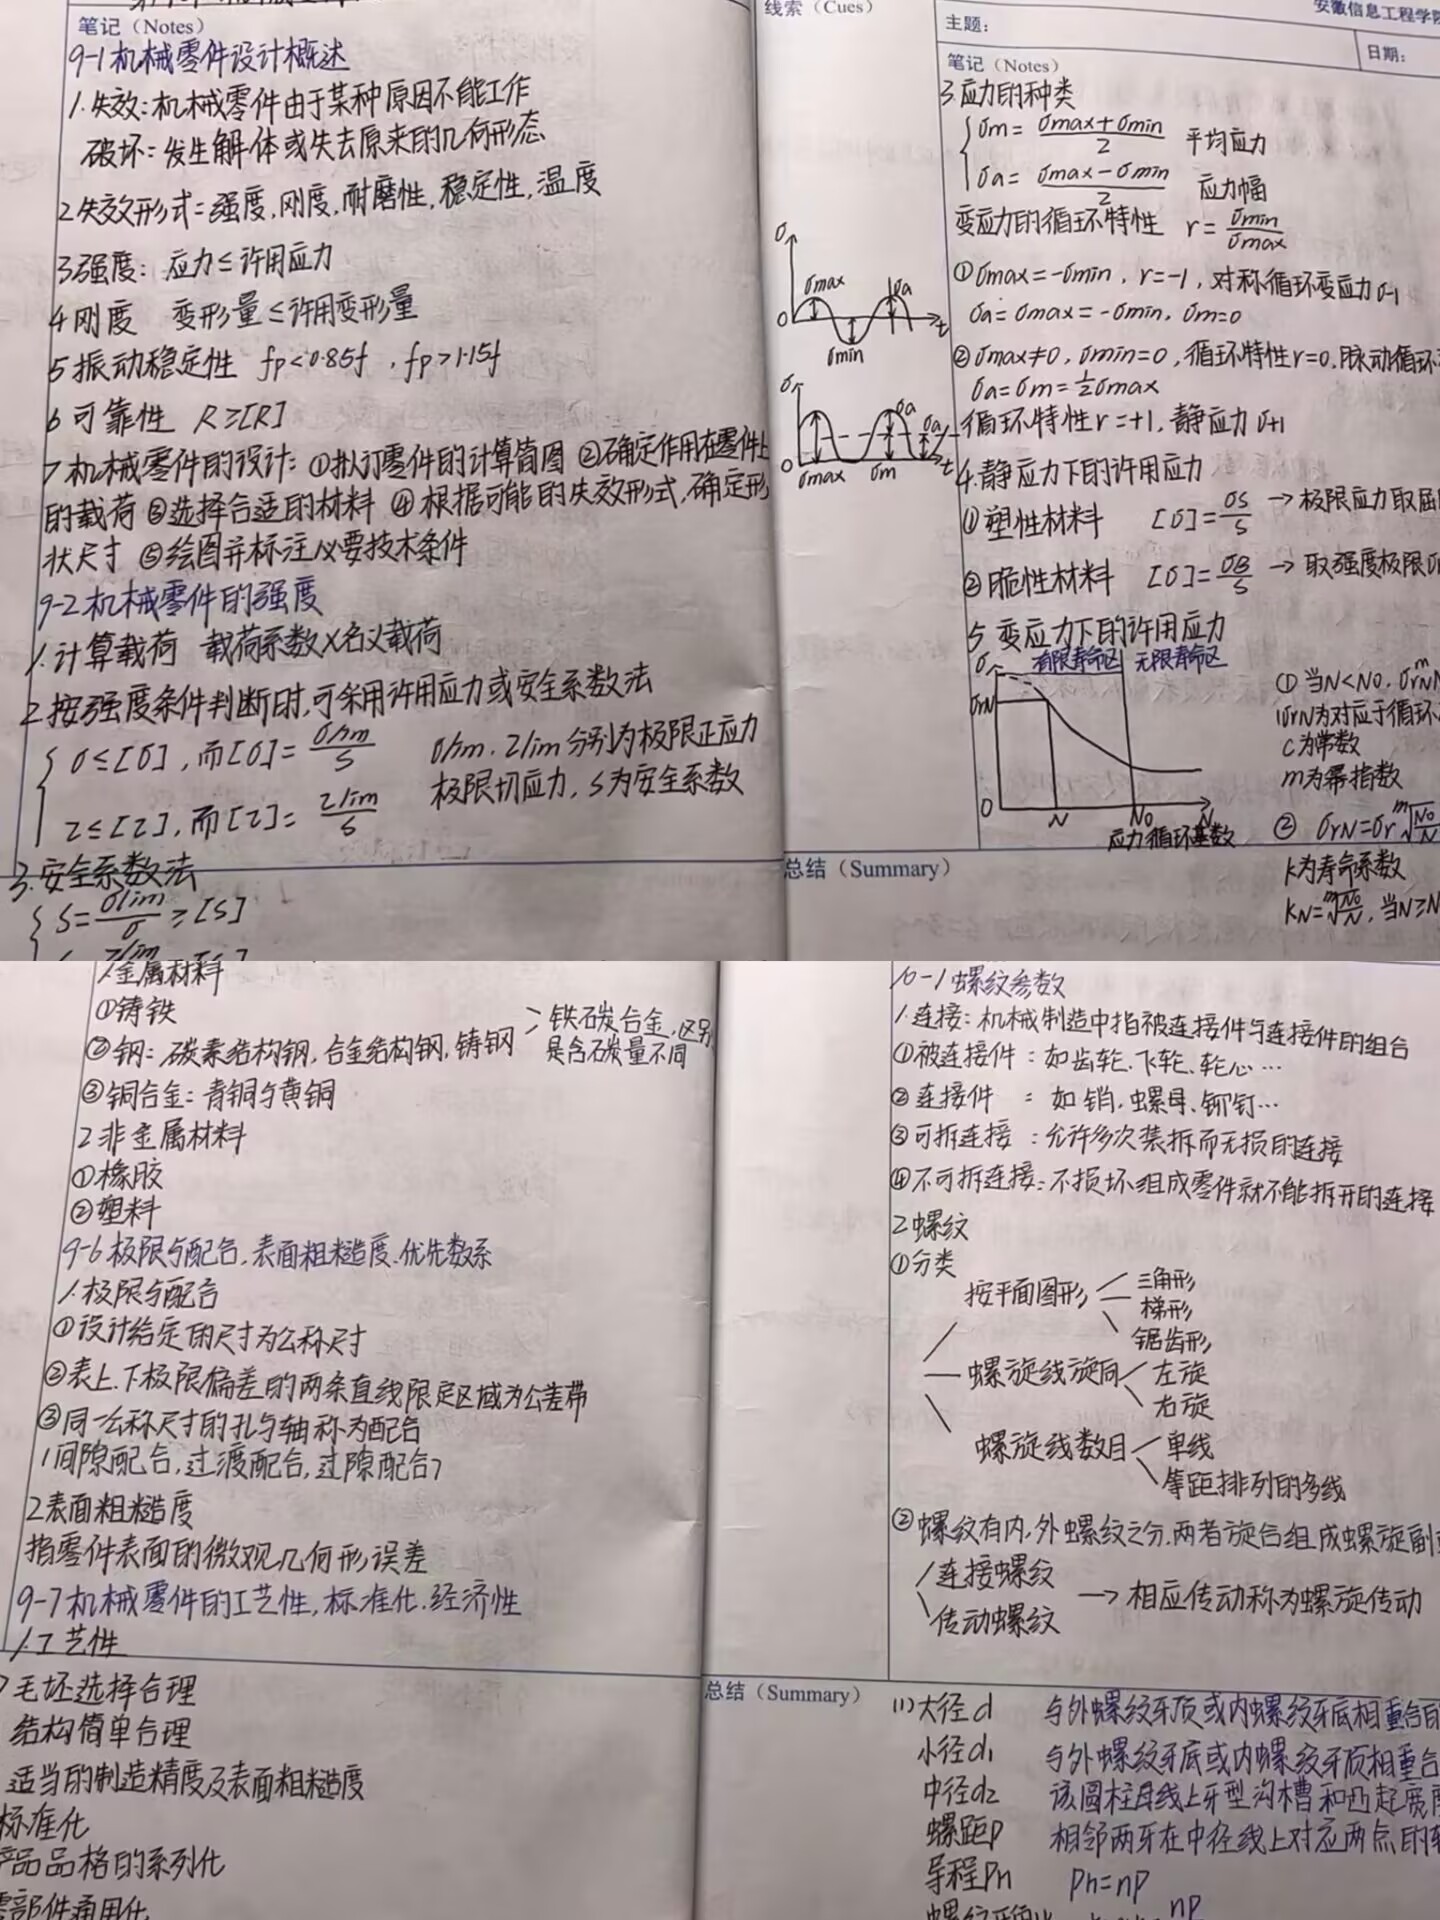 笔记（Notes）
9-1机械零件设计概述
1.失效：机械零件由于某种原因不能工作
破坏：发生解体或失去原来的几何形态
2失效形式：强度,刚度,耐磨性,稳定性,温度
3强度： 应力≤许用应力
4刚度 变形量≤许用变形量
5振动稳定性 fp<0.85f ，fp>1.15f
6可靠性 R≥[R]
7机械零件的设计：①拟订零件的计算简图 ②确定作用在零件上
的载荷 ③选择合适的材料 ④根据可能的失效形式,确定形
状尺寸 ⑤绘图并标注必要技术条件
9-2机械零件的强度
1.计算载荷 载荷系数×名义载荷
2.按强度条件判断时,可采用许用应力或安全系数法
σ≤[σ],而[σ]=σlim/S σlim.τlim分别为极限正应力
τ≤[τ],而[τ]=τlim/S 极限切应力，S为安全系数
3.安全系数法
S=σlim/σ≥[S]
线索（Cues）
σ
σmax
σa
0
t
σmin
σ
σa
σa
0
σmax
σm
t
总结（Summary）
安徽信息工程学院
主题：
日期：
笔记（Notes）
3.应力的种类
σm=(σmax+σmin)/2 平均应力
σa=(σmax-σmin)/2 应力幅
变应力的循环特性 r=σmin/σmax
①σmax=-σmin，r=-1，对称循环变应力σ-1
σa=σmax=-σmin，σm=0
②σmax≠0，σmin=0，循环特性r=0.脉动循环
σa=σm=½σmax
循环特性r=+1，静应力σ+1
4.静应力下的许用应力
①塑性材料 [σ]=σs/S →极限应力取屈
②脆性材料 [σ]=σB/S →取强度极限
5 变应力下的许用应力
σ 有限寿命区 无限寿命区
σrN
0 N N0 N
应力循环基数
①当N<N0，
σrN为对应于循环
C为常数
m为幂指数
② σrN=σr m√(N0/N)
k为寿命系数
kN=m√(N0/N)，当N≥N
1金属材料
①铸铁
②钢：碳素结构钢,合金结构钢,铸钢 >铁石炭合金,区别
是含石炭量不同
③铜合金：青铜与黄铜
2非金属材料
①橡胶
②塑料
9-6极限与配合,表面粗糙度.优先数系
1.极限与配合
①设计给定的尺寸为公称尺寸
②表上.下极限偏差的两条直线限定区域为公差带
③同一公称尺寸的孔与轴称为配合
(间隙配合,过渡配合,过隙配合)
2表面粗糙度
指零件表面的微观几何形误差
9-7机械零件的工艺性,标准化.经济性
1.工艺性
毛坯选择合理
结构简单合理
适当的制造精度及表面粗糙度
标准化
产品品格的系列化
零部件通用化
总结（Summary）
10-1螺纹参数
1.连接：机械制造中指被连接件与连接件的组合
①被连接件：如齿轮.飞轮.轮心…
②连接件 ：如销,螺母.铆钉…
③可拆连接：允许多次装拆而无损的连接
④不可拆连接：不损坏组成零件就不能拆开的连接
2螺纹
①分类
按平面图形
三角形
梯形
锯齿形
螺旋线旋向
左旋
右旋
螺旋线数目
单线
等距排列的多线
②螺纹有内.外螺纹之分.两者旋合组成螺旋副
连接螺纹
传动螺纹
→相应传动称为螺旋传动
(1)大径d 与外螺纹牙顶或内螺纹牙底相重合
小径d1 与外螺纹牙底或内螺纹牙顶相重合
中径d2 该圆柱母线上牙型沟槽和凸起宽度
螺距P 相邻两牙在中径线上对应两点的
导程Pn Pn=nP
nP